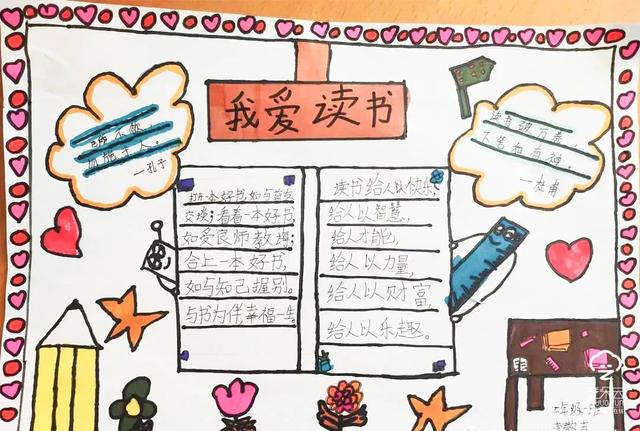 我爱读书
己所不欲，
勿施于人。
—孔子
读书破万卷，
下笔如有神。
—杜甫
打开一本好书,如与益友
交谈;看着一本好书,
如受良师教诲;
合上一本好书,
如与知己握别。
与书为伴,幸福一生。
读书给人以快乐,
给人以智慧,
给人才能,
给人以力量,
给人以财富,
给人以乐趣。